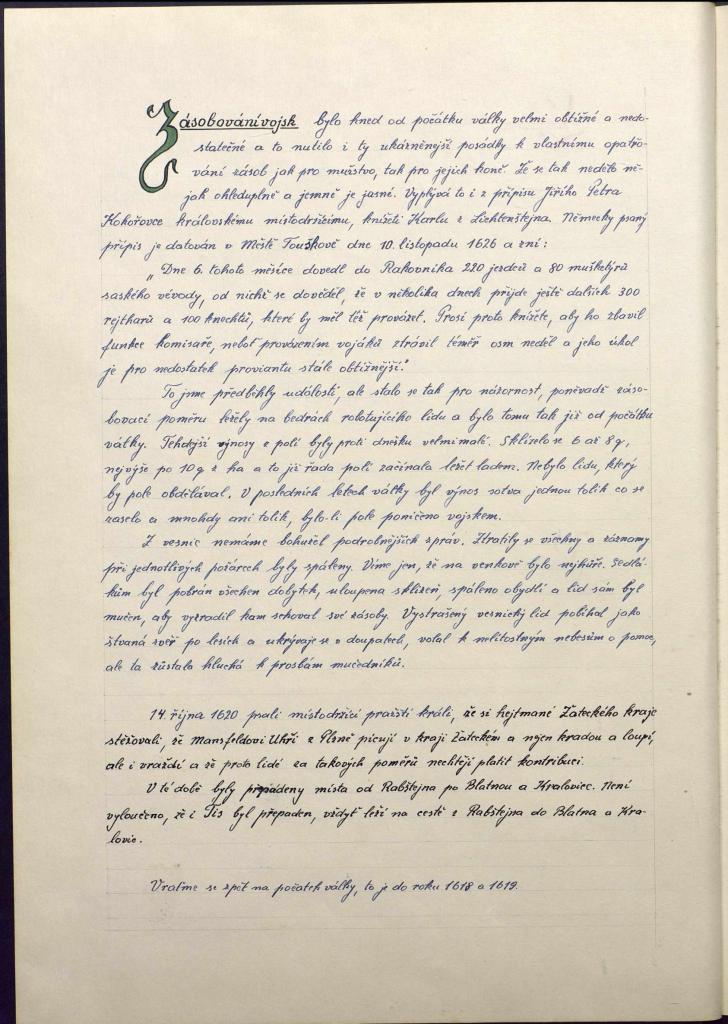 Zásobování vojsk bylo hned od počátku války velmi obtížné a nedo-
statečné a to nutilo i ty ukázněnější posádky k vlastnímu opatřo-
vání zásob jak pro mužstvo, tak pro jejich koně. Že se tak nedělo ně-
jak ohleduplně a jemně je jasné. Vyplývá to i z přípisu Jiřího Petra
Kokořovce královskému místodržícímu, knížeti Karlu z Lichtenštejna. Německy psaný
přípis je datován v Městě Touškově dne 10. listopadu 1626 a zní:
„Dne 6. tohoto měsíce dovedl do Rakovníka 220 jezdců a 80 mušketýrů
saského vévody, od nichž se dověděl, že v několika dnech přijde ještě dalších 300
rejtharů a 100 knechtů, které by měl též provázet. Prosí proto knížete, aby ho zbavil
funkce komisaře, neboť provázením vojáků ztrávil téměř osm neděl a jeho úkol
je pro nedostatek proviantu stále obtížnější."
To jsme předběhly událostí, ale stalo se tak pro názornost, poněvadž záso-
bovací poměru ležely na bedrách robotujícího lidu a bylo tomu tak již od počátku
války. Tehdejší výnosy z polí byly proti dnešku velmi malé. Sklízelo se 6 až 8 q,
nejvýše po 10 q z ha a to již řada polí začínala ležet ladem. Nebylo lidu, který
by pole obdělával. V posledních letech války byl výnos sotva jednou tolik co se
zaselo a mnohdy ani tolik, bylo-li pole poničeno vojskem.
Z vesnic nemáme bohužel podrobnějších zpráv. Ztratily se všechny a záznamy
při jednotlivých požárech byly spáleny. Víme jen, že na venkově bylo nejhůře. Sedlá-
kům byl pobrán všechen dobytek, uloupena sklizeň, spáleno obydlí a lid sám byl
mučen, aby vyzradil kam schoval své zásoby. Vystrašený vesnický lid pobíhal jako
štvaná zvěř po lesích a ukrývaje se v doupatech, volal k nelítostným nebesům o pomoc,
ale ta zůstala hluchá k prosbám mučedníků.
14. října 1620 psali místodržící pražští králi, že si hejtmané Žateckého kraje
stěžovali, že Mansfeldovi Uhři z Plzně picují v kraji Žateckém a nejen kradou a loupí,
ale i vraždí a že proto lidé za takových poměrů nechtějí platit kontribuci.
V té době byly přepadeny místa od Rabštejna po Blatnou a Kralovice. Není
vyloučeno, že i Tis byl přepaden, vždyť leží na cestě z Rabštejna do Blatna a Kra-
lovic.
Vraťme se zpět na počátek války, to je do roku 1618 a 1619.